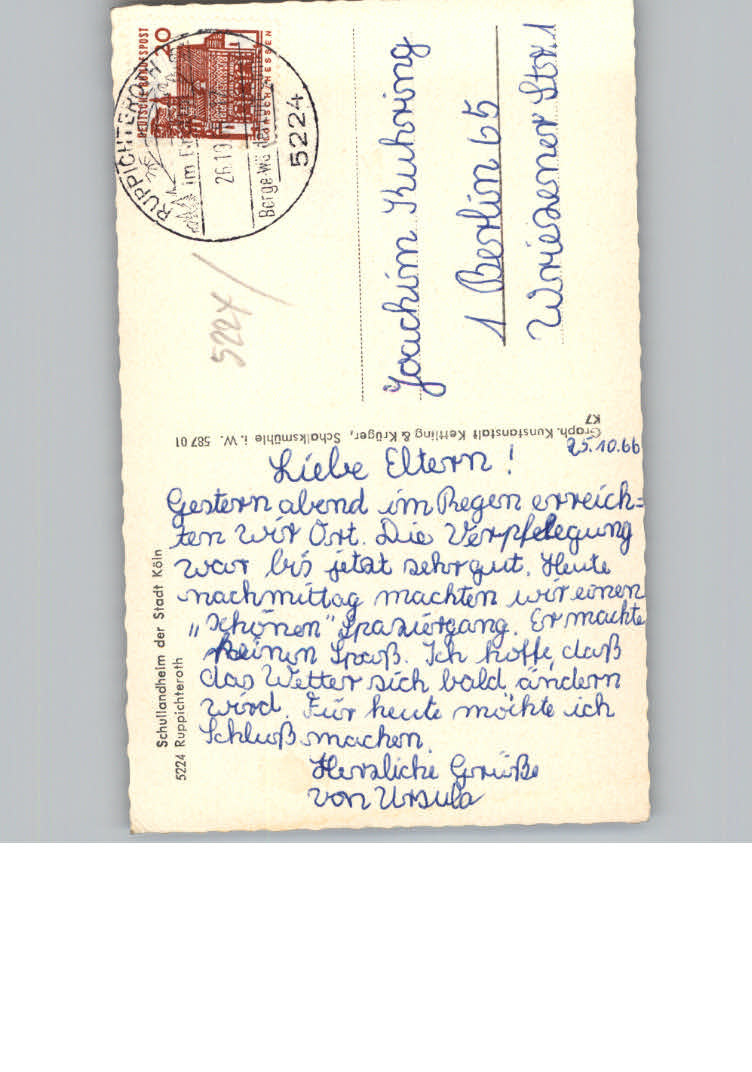 25.10.66
Liebe Eltern!
Gestern abend im Regen erreich=
ten wir Ort. Die Verpfelegung
war bis jetzt sehr gut. Heute
nachmittag machten wir einen
„schönen" Spaziergang. Er machte
keinen Spaß. Ich hoffe daß
das Wetter sich bald ändern
wird. Für heute möchte ich
Schluß machen.
Herzliche Grüße
von Ursula
Schullandheim der Stadt Köln
5224 Ruppichteroth
Graph. Kunstanstalt Kettling & Krüger, Schalksmühle i. W. 587 01
K7
Joachim Kuhring
1 Berlin 65
Wriezener Str. 1
5224
DEUTSCHE BUNDESPOST
20
LORSCH HESSEN
RUPPICHTEROTH
im
26.10
Berge
5224